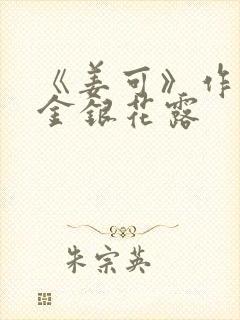 《姜可》作
金银花露
朱宗英